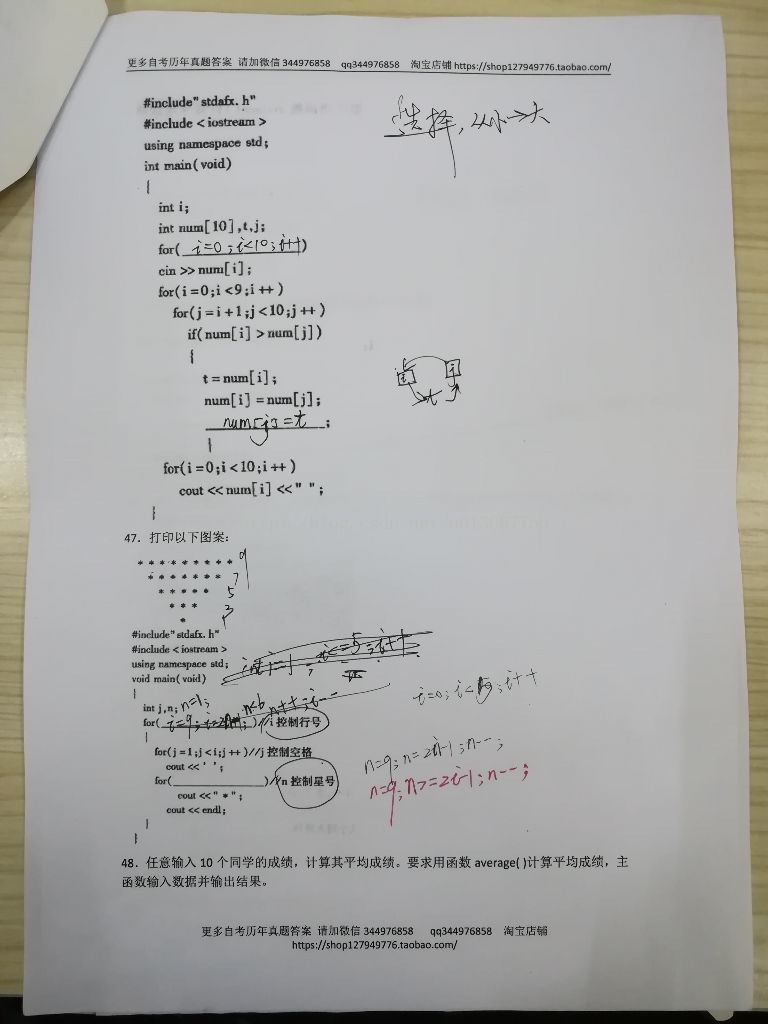 更多自考历年真题答案 请加微信 344976858 qq344976858 淘宝店铺 https://shop127949776.taobao.com/
#include" stdafx. h"
选择,从小→大
#include < iostream >
using namespace std;
int main( void)
{
int i;
int num[ 10] ,t,j;
for( i=0;i<10;i++)
cin >> num[ i] ;
for(i =0;i <9;i ++ )
for(j = i +1;j <10;j ++ )
if( num[ i] > num[ j] )
{
t = num[ i] ;
num[ i] = num[ j] ;
num[j]=t ;
}
for(i =0;i <10;i ++ )
cout << num[ i] << " " ;
}
47. 打印以下图案:
* * * * * * * * * 9
* * * * * * * 7
* * * * * 5
* * * 3
* 1
#include" stdafx. h"
#include < iostream >
using namespace std;
void main( void)
{
int j,n; n=1;
for( )//i 控制行号
{
for(j =1;j <i;j ++ )//j 控制空格
cout << ' ' ;
for( )//n 控制星号
cout << " * " ;
cout << endl;
}
}
n=9;n=2i-1;n--;
n=9;n>=2i-1;n--;
48. 任意输入 10 个同学的成绩,计算其平均成绩。要求用函数 average( )计算平均成绩,主
函数输入数据并输出结果。
更多自考历年真题答案 请加微信 344976858 qq344976858 淘宝店铺
https://shop127949776.taobao.com/